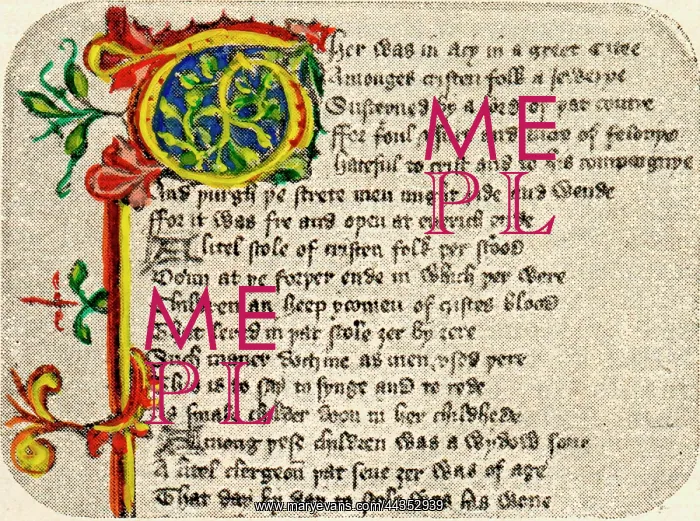 Ther was in Acy in a greet citee
Amonges cristen folk a Iewerye
Susteened by a lord of þat contre
ffor foul and of felonye
hateful to crist and to his compaignye
And þurgh þe strete men might ride and wende
ffor it was fre and open at euerich ende
A litel scole of cristen folk þer stood
Doun at þe forþer ende in which þer were
Children an heep ycomen of cristes blood
That lered in þat scole ȝer by ȝere
Such maner doctrine as men vsed þere
This is to say to synge and to rede
As smale childer doon in her childhede
Among þese children was a wydow sone
A litel clergeon þat seue ȝer was of age
That day by day to scole was his wone
ME
PL
ME
PL
www.maryevans.com/44352939